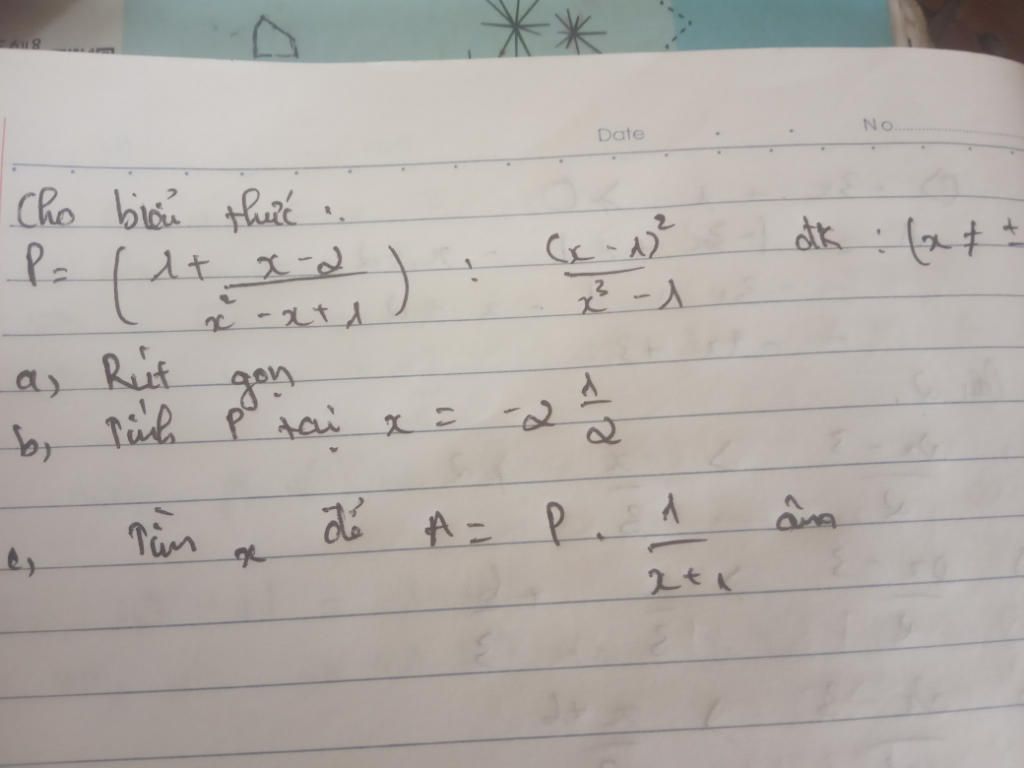 Date No
Cho biểu thức :
P = ( 1 + \frac{x-2}{x^2-x+1} ) : \frac{(x-1)^2}{x^3-1} đk : (x ≠ ±
a, Rút gọn
b, Tính P tại x = -2 \frac{1}{2}
c, Tìm x để A = P . \frac{1}{x+1} âm